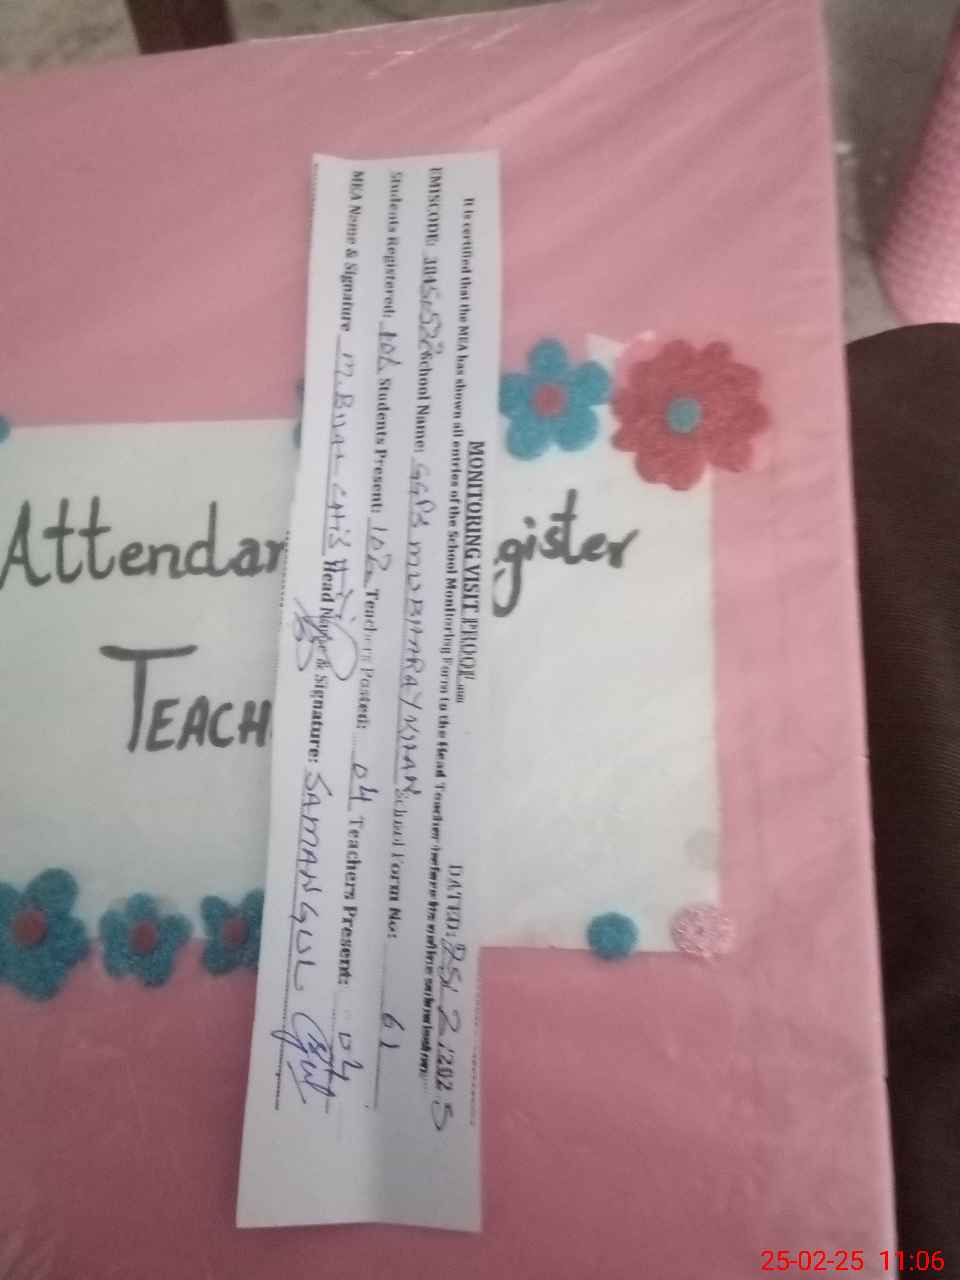 MONITORING VISIT PROOF
DATED: 25/2/2025
It is certified that the MEA has shown all entries of the School Monitoring Form to the Head Teacher before the online submission.
EMISCODE: School Name: GGPS MUBARAAY KHAN School Form No: 61
Students Registered: Students Present: 102 Teachers Posted: 04 Teachers Present: 04
MEA Name & Signature M. BILAL CHISHTI Head Name & Signature: SAMAN GUL
Attendan gister
TEACH
25-02-25 11:06